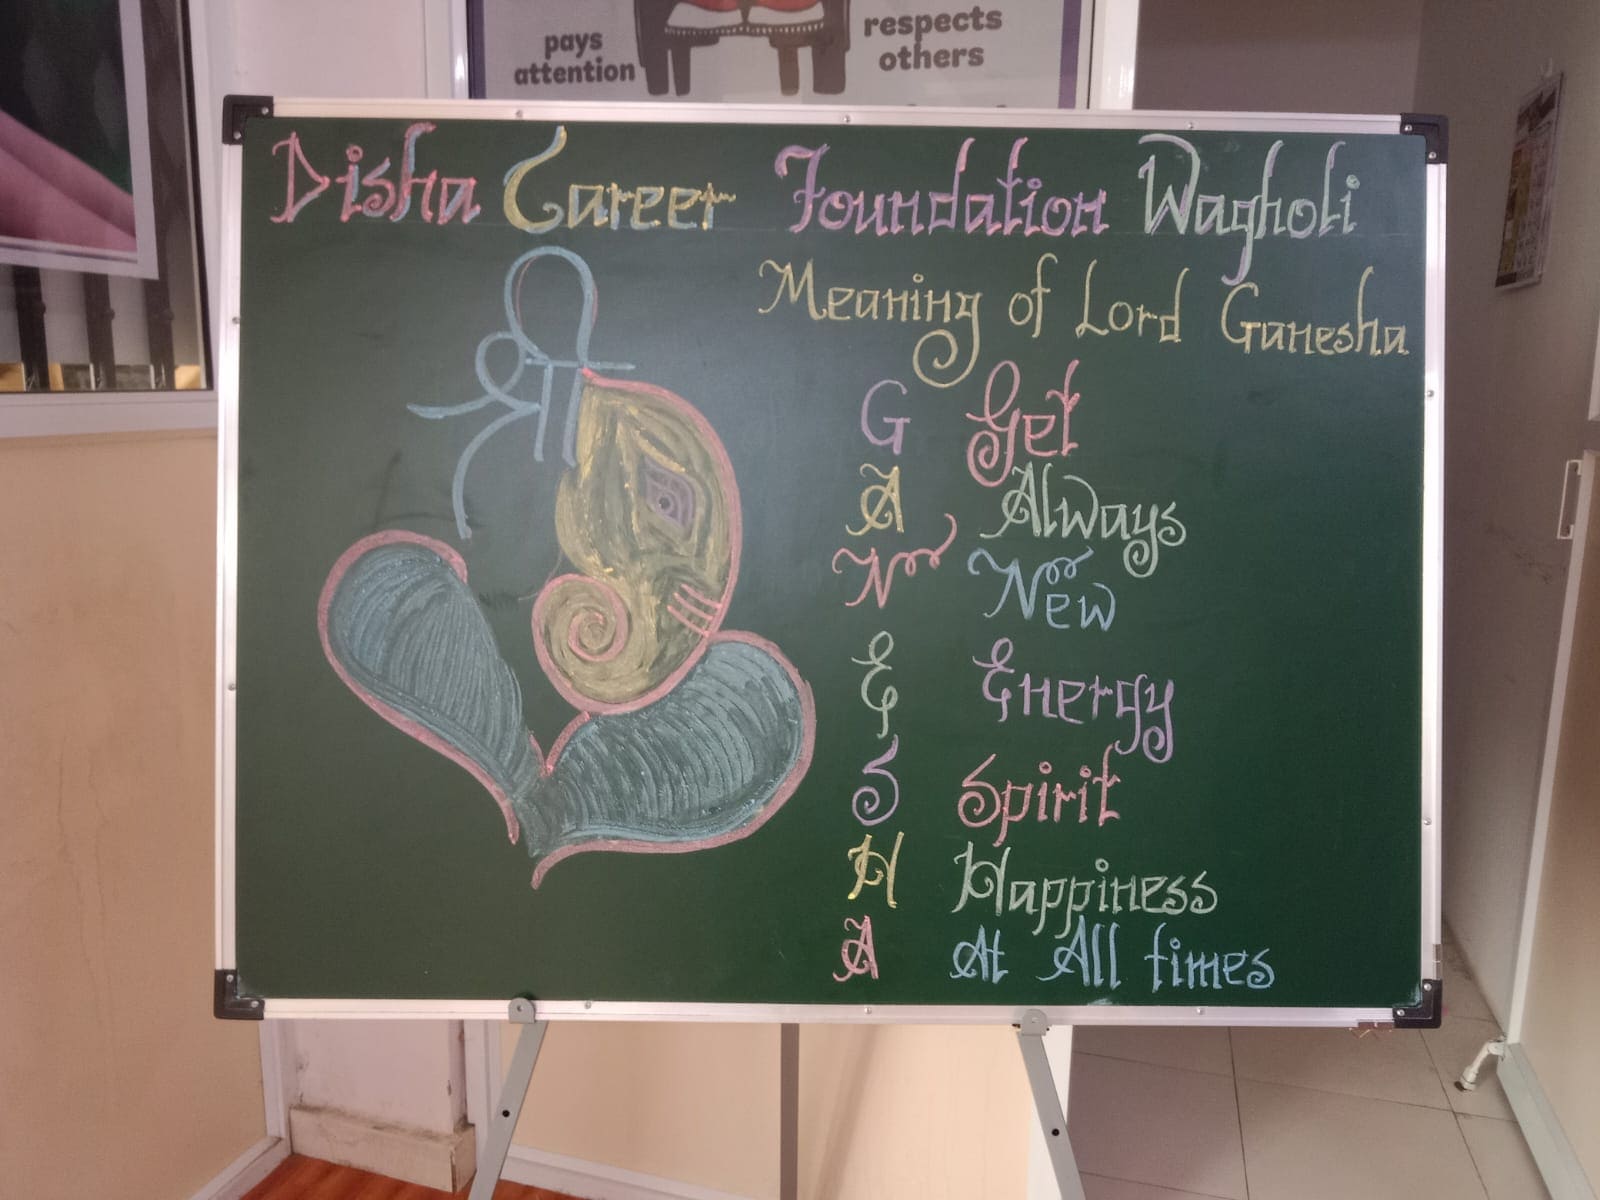 pays
attention
respects
others
Disha Career Foundation Wagholi
श्री
Meaning of Lord Ganesha
G Get
A Always
N New
E Energy
S Spirit
H Happiness
A At All times